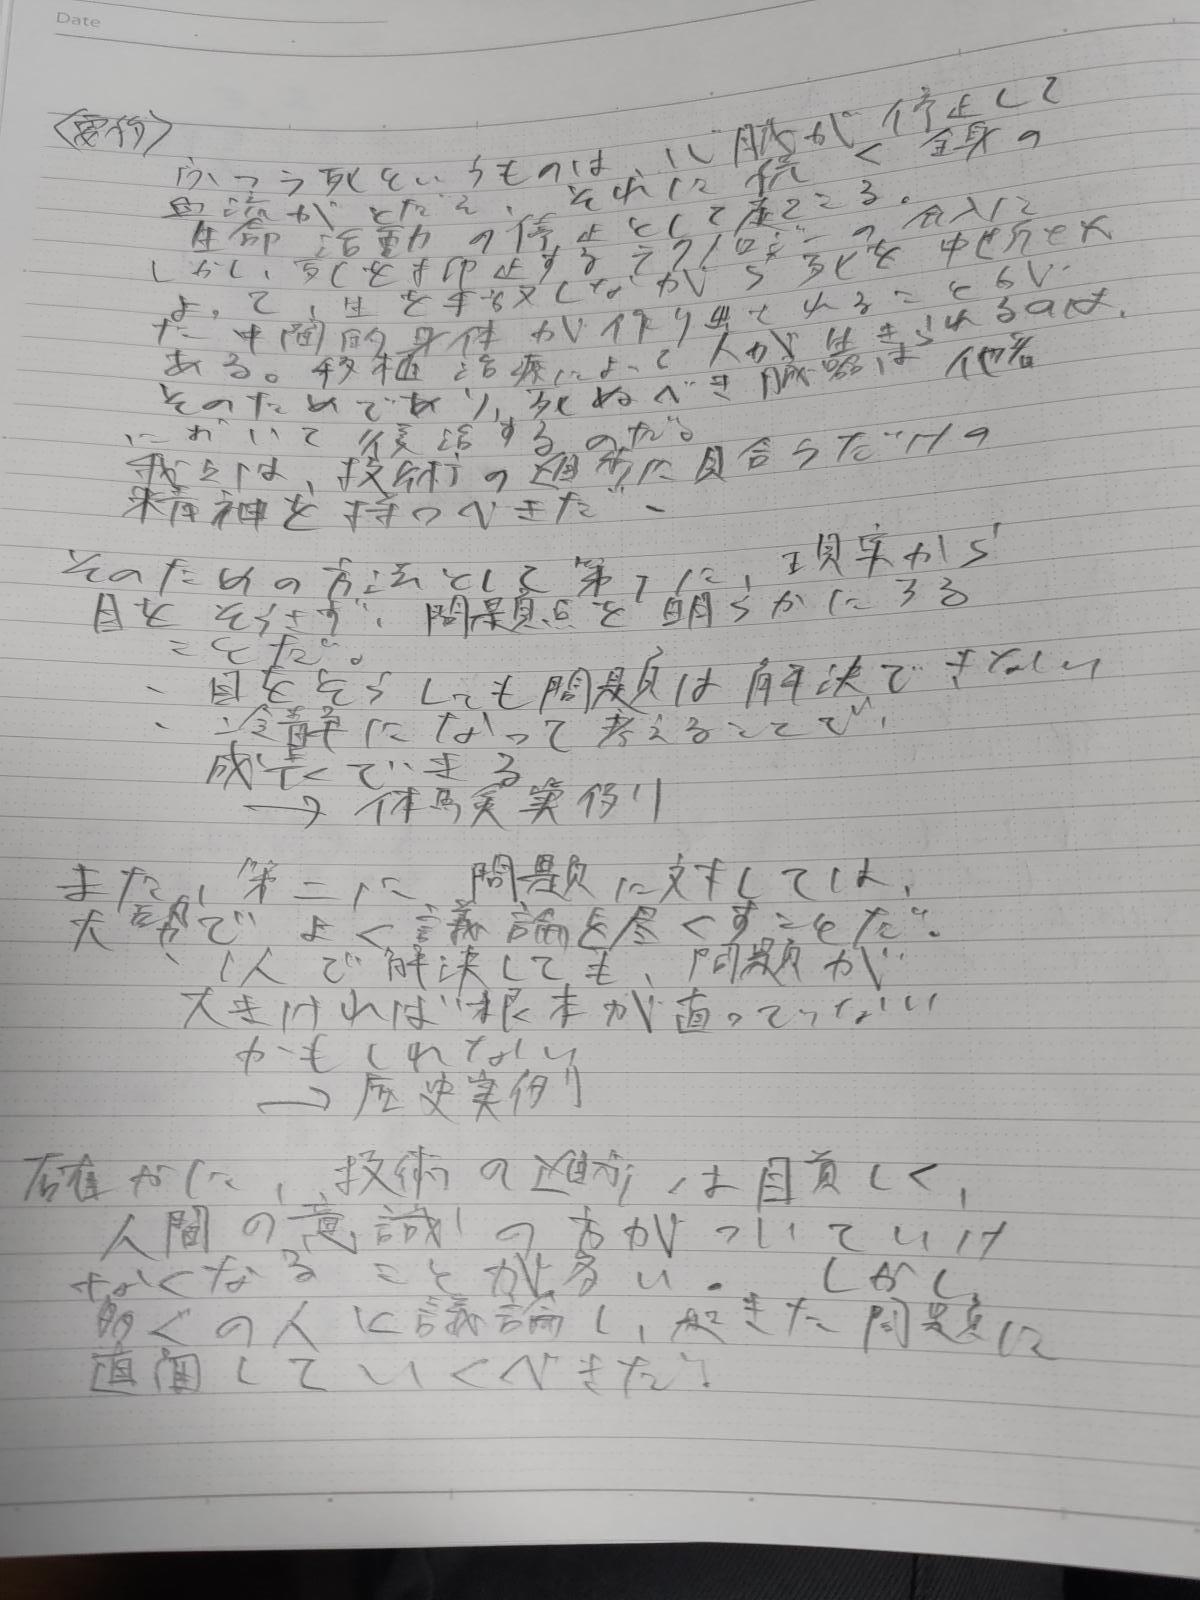 Date
〈要約〉
ふつう死というものは、心臓が停止して
血流がとだえ、それに続く全身の
生命活動の停止として起こる。
しかし、死を抑止するテクノロジーの介入に
よって、生を手放しながら死を中断させ
た中間的身体が作り出されることもが
ある。移植治療によって人が生きられるのは、
そのためであり、死ぬべき臓器は他者
において復活するのだ。
我々は、技術の進歩に見合うだけの
精神を持つべきだ。
そのための方法として第1に、現実から
目をそらさず、問題点を明らかにする
ことだ。
、目をそらしても問題は解決できない
、冷静になって考えることで、
成長できる
→体験実例
また、第二に、問題に対しては、
大勢でよく議論を尽くすことだ。
、1人で解決しても、問題が
大きければ根本が直っていない
かもしれない
→歴史実例
確かに、技術の進歩は目覚しく、
人間の意識の方がついていけ
なくなることが多い。しかし、
多くの人に議論し、起きた問題に
直面していくべきだ。